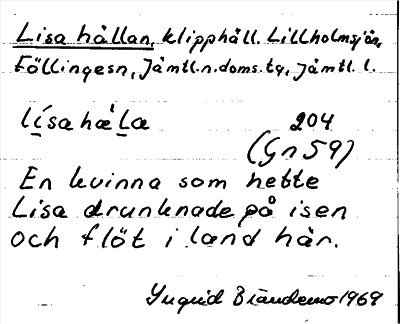 Lisa hällan, klipphäll. Lillholmsjön,
Föllingesn, Jämtl.n.doms.tg, Jämtl. l.
lísahæ̀La 204
(Gn 59)
En kvinna som hette
Lisa drunknade på isen
och flöt i land här.
Ingrid Brändemo 1969